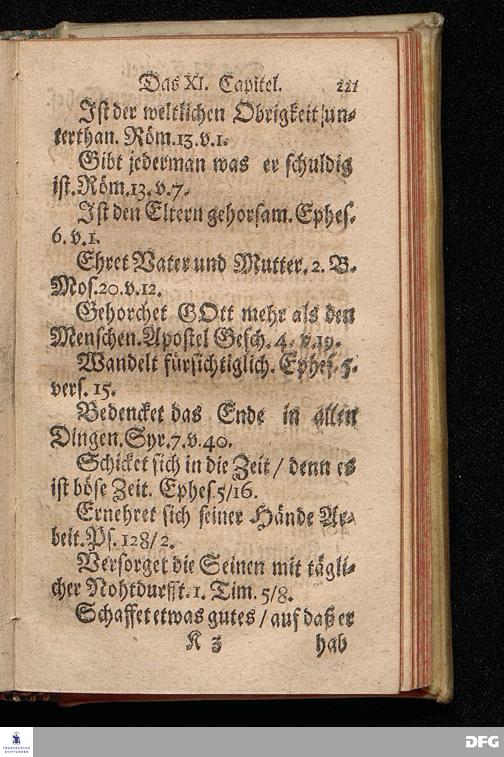 Das XI. Capitel. 221
Ist der weltlichen Obrigkeit / un-
terthan. Röm. 13. v. 1.
Gibt jederman was er schuldig
ist. Röm. 13. v. 7.
Ist den Eltern gehorsam. Ephes.
6. v. 1.
Ehret Vater und Mutter. 2. B.
Mos. 20. v. 12.
Gehorchet GOtt mehr als den
Menschen. Apostel Gesch. 4. v. 19.
Wandelt fürsichtiglich. Ephes. 5.
vers. 15.
Bedencket das Ende in allen
Dingen. Syr. 7. v. 40.
Schicket sich in die Zeit / denn es
ist böse Zeit. Ephes. 5/16.
Ernehret sich seiner Hände Ar-
beit. Ps. 128/2.
Versorget die Seinen mit tägli-
cher Nohtdurfft. 1. Tim. 5/8.
Schaffet etwas gutes / auf daß er
K 3 hab
FRANCKESCHE
STIFTUNGEN
DFG